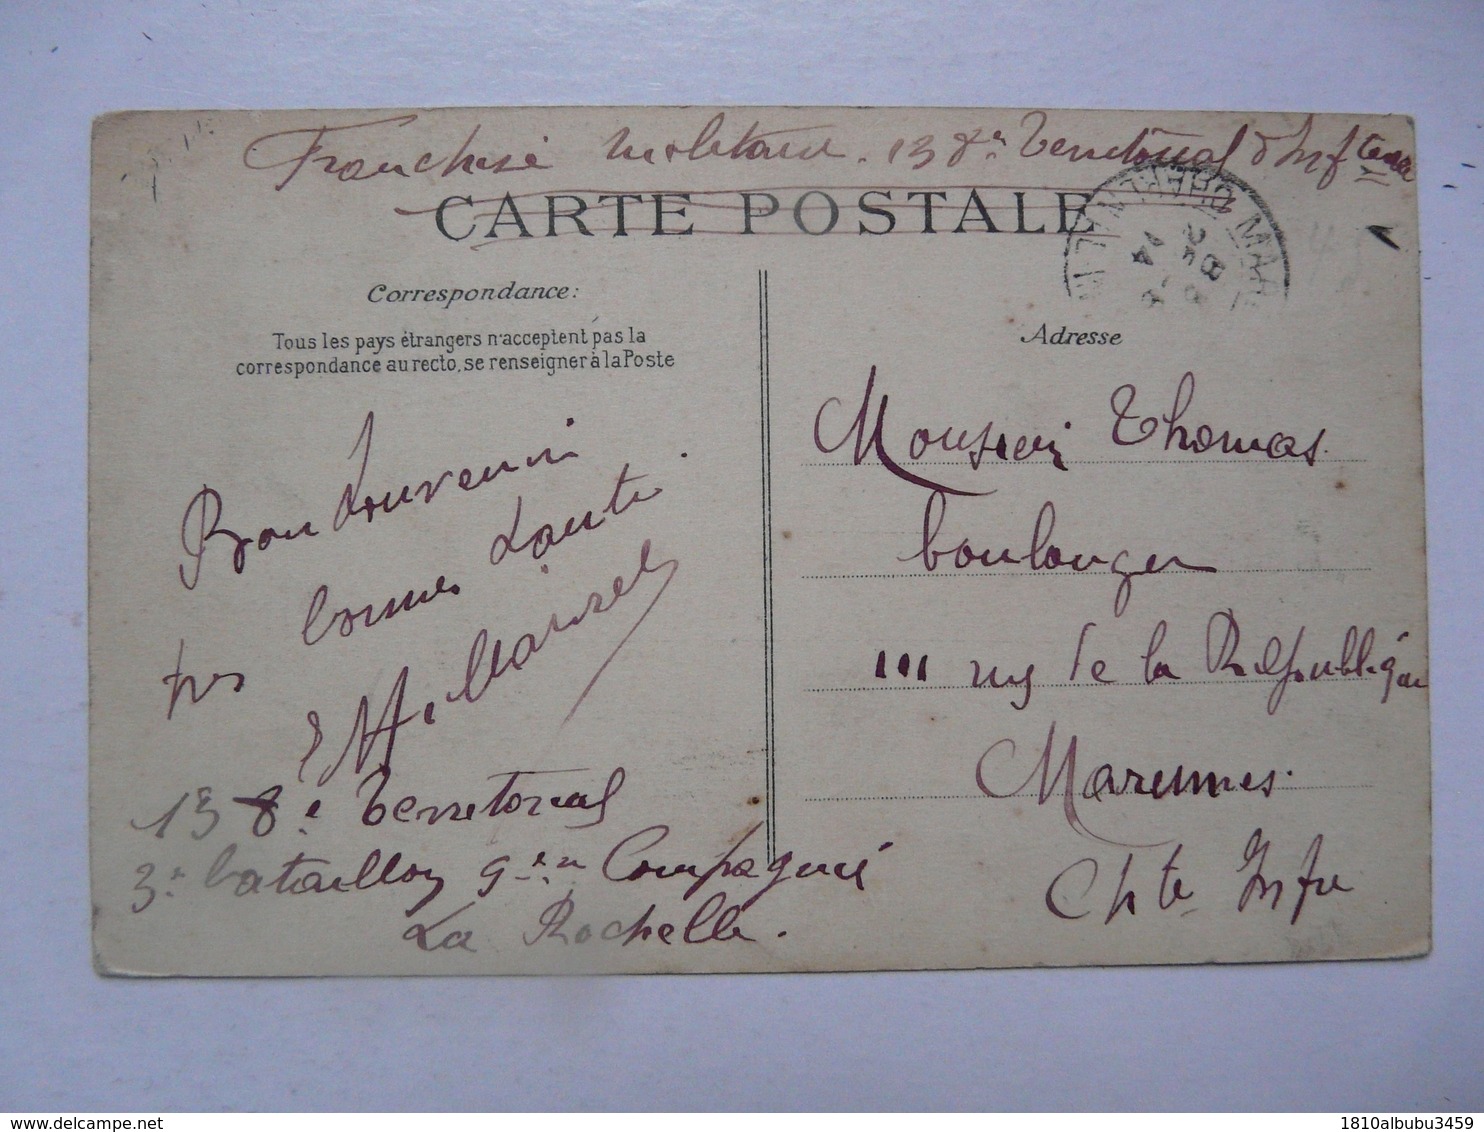 Franchise militaire. 138e Territorial d'Infterie
CARTE POSTALE
MAR
Correspondance:
Tous les pays étrangers n'acceptent pas la
correspondance au recto, se renseigner à la Poste
Adresse
Monsieur Thomas.
boulanger
111 rue de la République
Marennes.
Chte Infre
Bon Souvenir
bonnes Santé.
138e Territorial
3e bataillon 9e Compagnie
La Rochelle.
delcampe.net
1810albubu3459